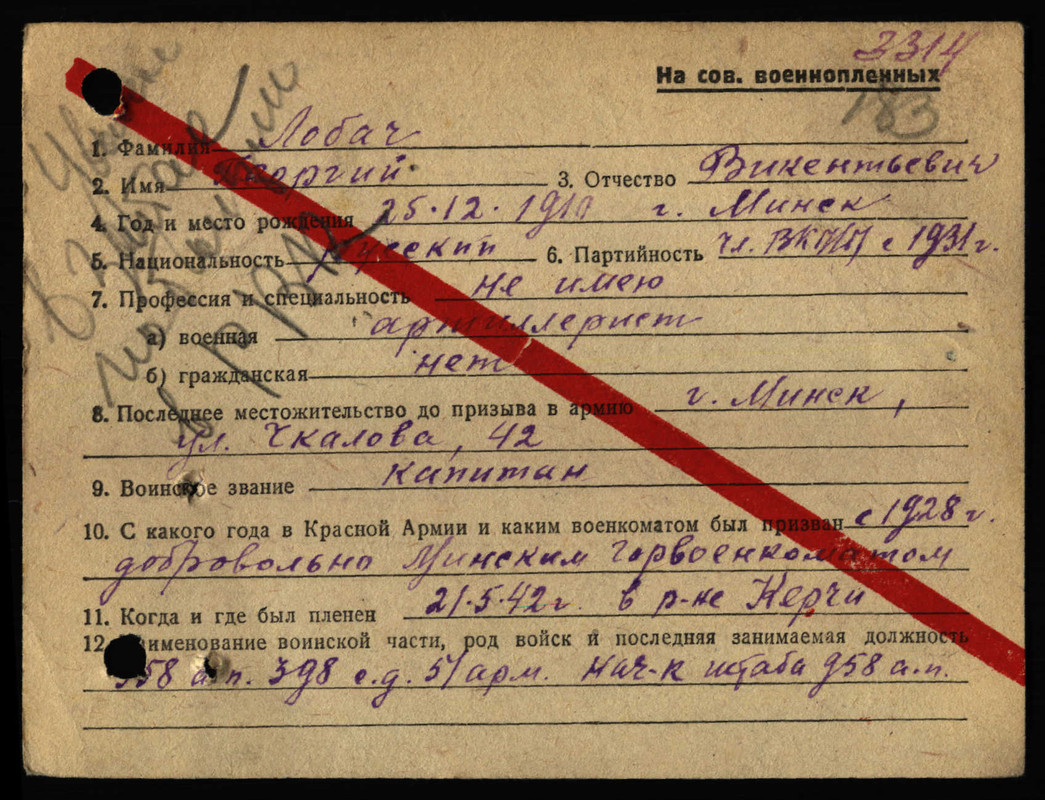 3314
На сов. военнопленных
183
1. Фамилия Лобач
2. Имя Георгий. 3. Отчество Викентьевич
4. Год и место рождения 25.12.1910 г. Минск
5. Национальность русский 6. Партийность чл. ВКП/б/ с 1931 г.
7. Профессия и специальность не имею
а) военная артиллерист
б) гражданская нет
8. Последнее местожительство до призыва в армию г. Минск,
ул. Чкалова, 42
9. Воинское звание капитан
10. С какого года в Красной Армии и каким военкоматом был призван с 1928 г.
добровольно Минским Горвоенкоматом
11. Когда и где был пленен 21.5.42 г. в р-не Керчи
12. именование воинской части, род войск и последняя занимаемая должность
958 а.п. 398 с.д. 51 арм. нач-к штаба 958 а.п.